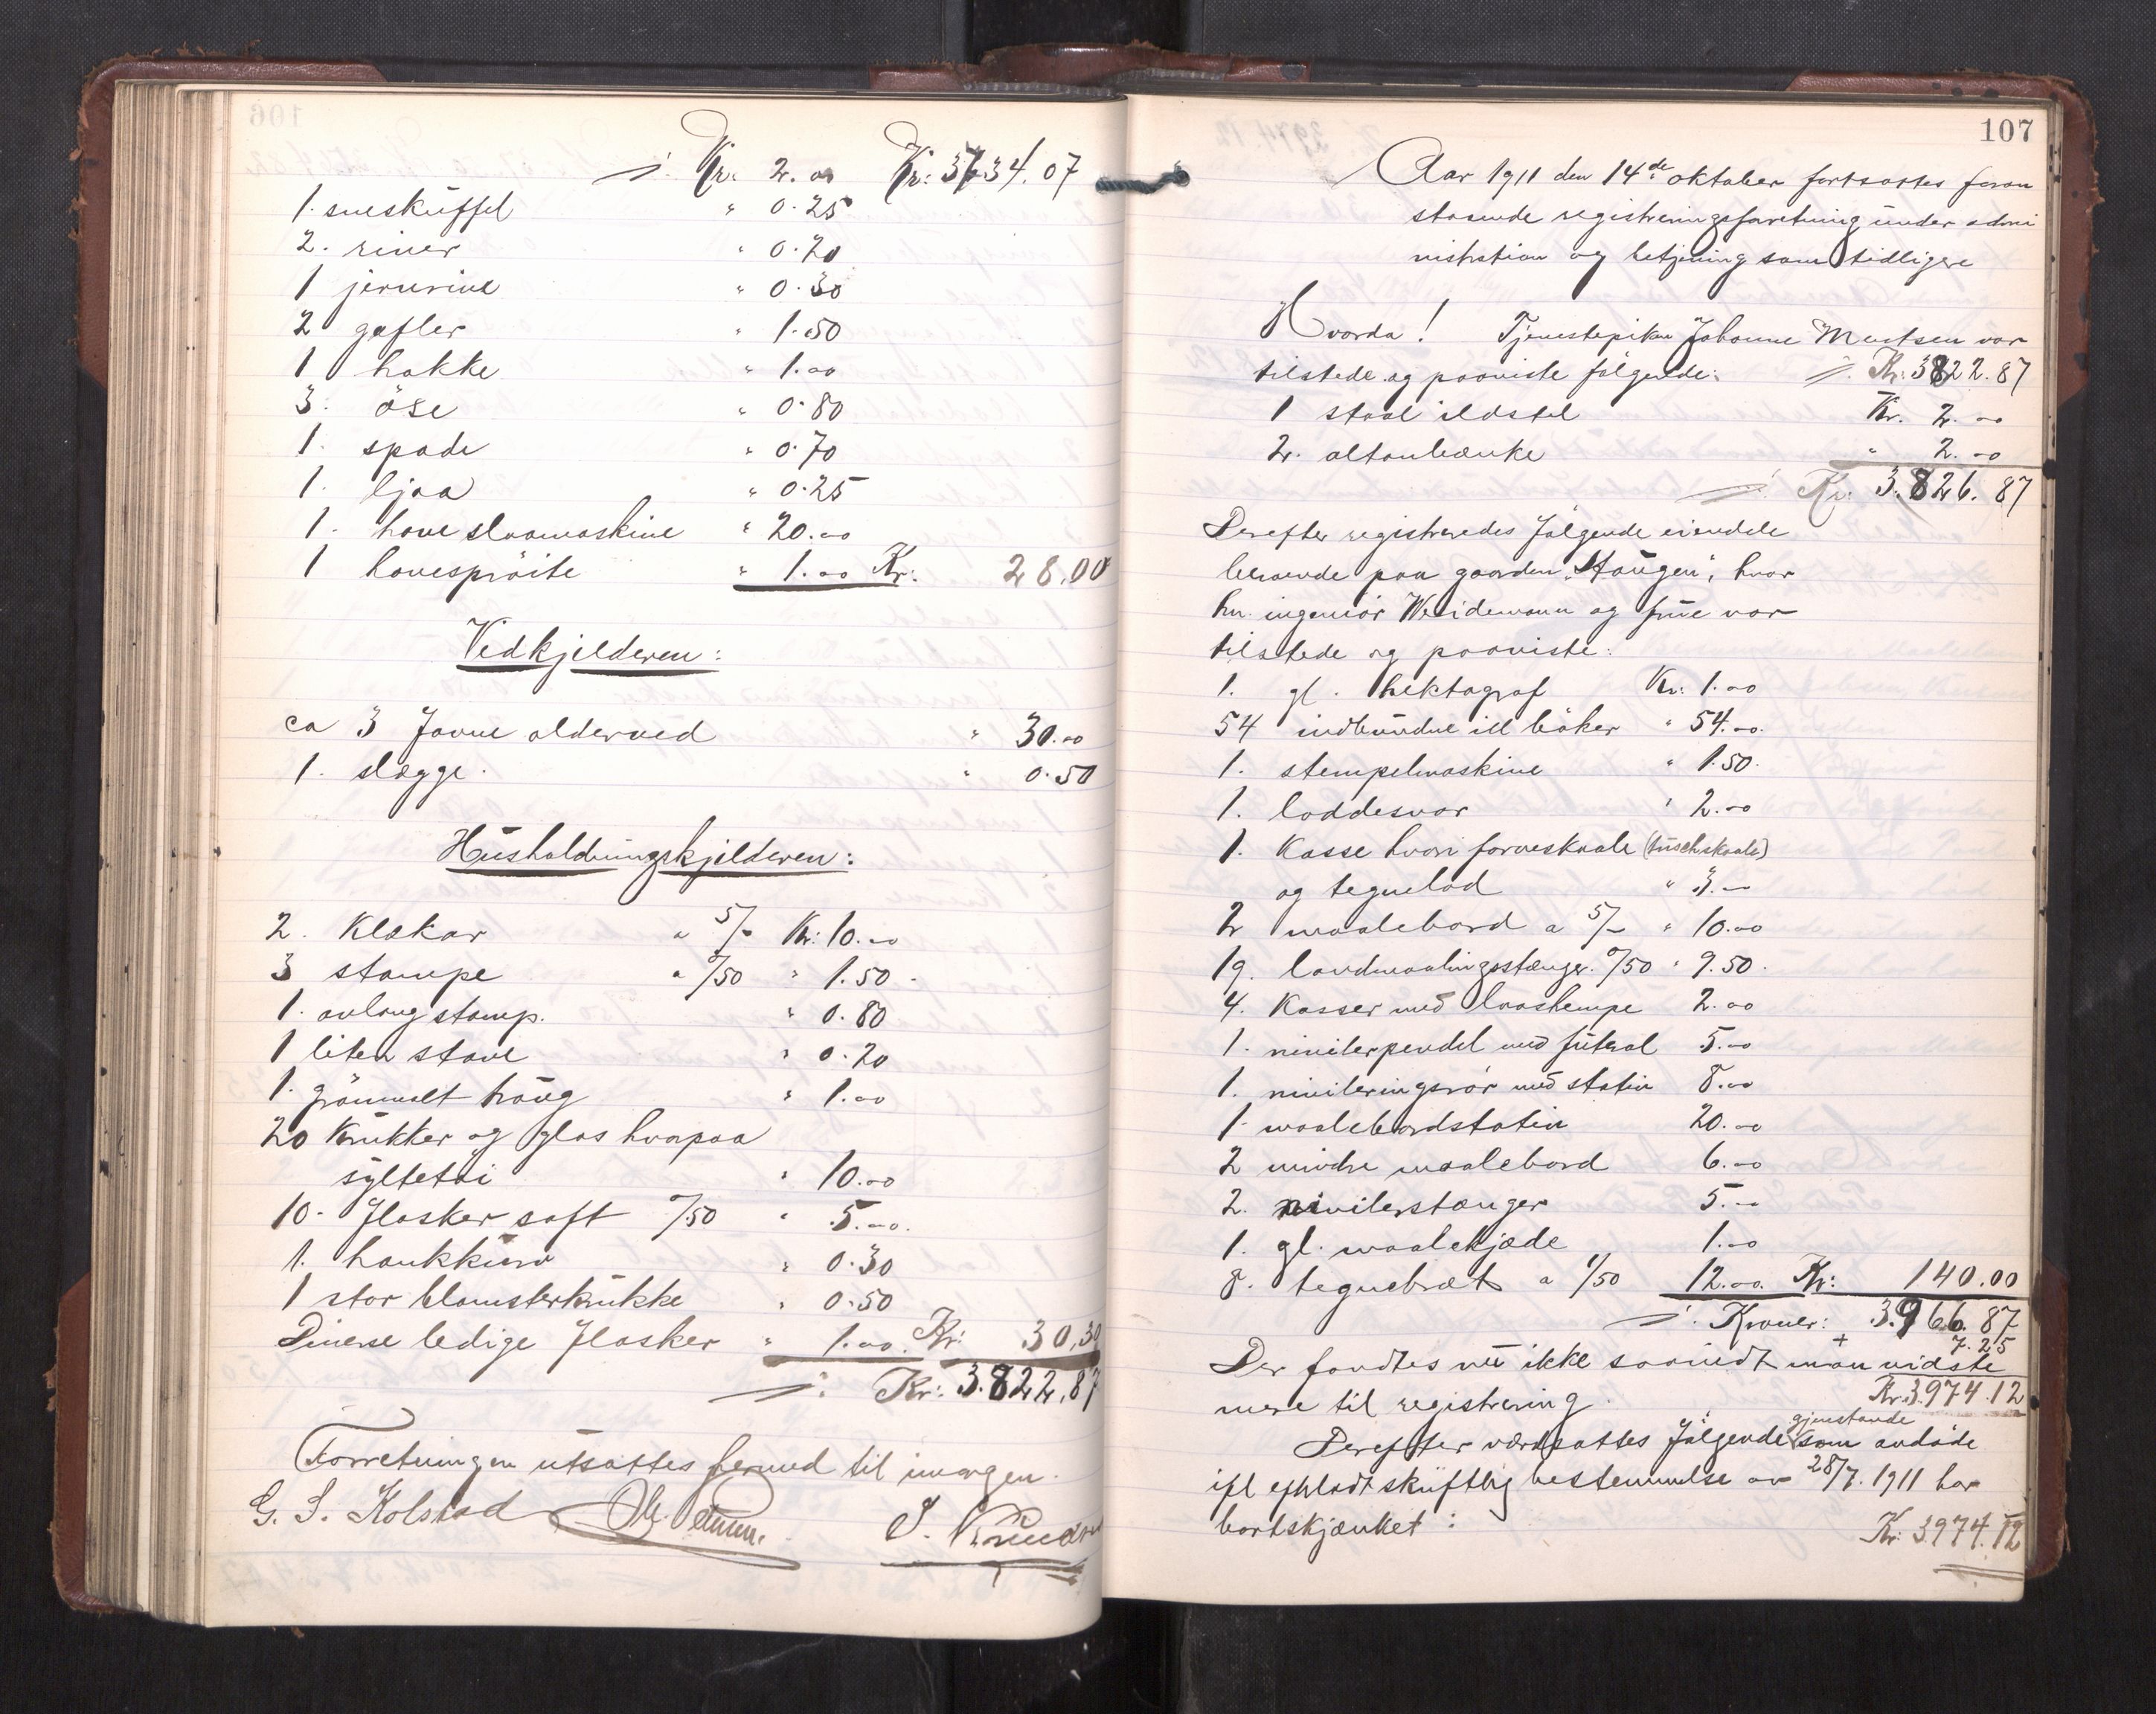 ÷ Kr. 2.00 Kr: 3734.07
1. snesküffel " 0.25
2. river " 0.20
1 jernrive " 0.30
2 gafler " 1.50
1 hakke " 1.00
3. öse " 0.80
1. spade " 0.70
1. ljaa " 0.25
1. have slaamaskine " 20.00
1 havespröite " 1.00 Kr: 28.00
Vedkjelderen:
ca 3 Favne olderved " 30.00
1. slægge. " 0.50
Hüsholdningskjelderen:
2. Klækar a 5/- Kr: 10.00
3 stampe a 0/50 " 1.50
1. avlang stamp. " 0.80
1 liten stave " 0.20
1. grönmalt traüg " 1.00
20 Krükker og glas hvorpaa
syltetöi " 10.00
10. Flasker saft 0/50 " 5.00.
1. hankkürv " 0.30
1 stor blomsterkrükke " 0.50
Diverse ledige Flasker " 1.00. Kr: 30,30
÷ Kr: 3.822,87
Forretningen utsattes herved til imorgen.
G. S. Kolstad
107
Aar 1911 den 14de oktober fortsattes foran
staaende registreringsforretning ünder admi
nistration og betjening som tidligere
Hvorda! Tjenestepiken Johanne Madsen var
tilstede og paaviste følgende: ÷ Kr: 3822.87
1 staal ildstel Kr. 2.00
2. altanbænke " 2.00
÷ Kr: 3.826.87
Derefter registreredes følgende eiendele
beroende paa gaarden "Haügen", hvor
hr. ingeniör Weidemann og früe var
tilstede og paaviste:
1. gl. hektograf Kr: 1.00
54 indbündne ill bøker " 54.00.
1. stempelmaskine " 1.50.
1. loddesnor " 2.00
1. Kasse hvori farveskaale (tüschskaale)
og tegnelod " 3.—
2 maalebord a 5/- " 10.00
19. landmaalingsstænger. 0/50 " 9.50.
4. Kasser med 2.00
1. nivilerpendel med füteral 5.00
1. nivileringsrör med stativ 8.00
1. maalebordstativ 20.00
2 mindre maalebord 6.00
2. nivilerstænger 5.—
1. gl. maalekjæde 1.00
8. tegnebræt a 1/50 12.00. Kr: 140.00
÷ Kroner: 3.966.87
+ 7.25
Der fandtes nü ikke saavidt man vidste
Kr. 3.974.12
mere til registrering.
gjenstande
Derefter værdsattes følgende som avdøde
ifl efterladt skriftlig bestemmelse av 28/7. 1911 har
bortskjænket: Kr: 3974.12